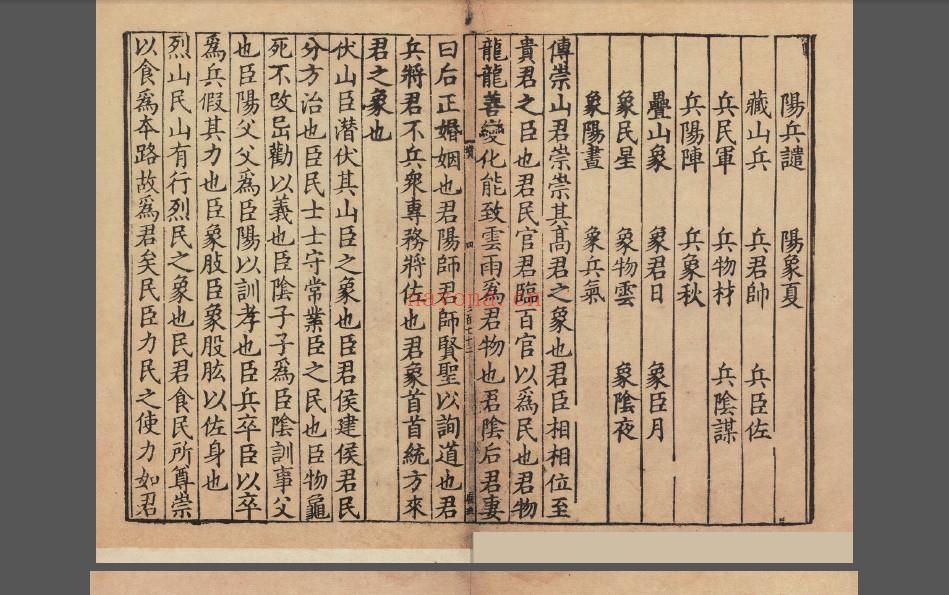 陽兵譴 陽象夏
藏山兵 兵君帥 兵臣佐
兵民軍 兵物材 兵陰謀
兵陽陣 兵象秋
疊山象 象君日 象臣月
象民星 象物雲 象陰夜
象陽晝 象兵氣
傳崇山君崇崇其髙君之象也君臣相相位至
貴君之臣也君民官君臨百官以爲民也君物
龍龍善變化能致雲雨爲君物也君陰后君妻
墳 四
曰后正婚姻也君陽師君師賢聖以詢道也君
兵將君不兵衆專務將佐也君象首首統方來
君之象也
伏山臣潜伏其山臣之象也臣君侯建侯君民
分方治也臣民士士守常業臣之民也臣物龜
死不改 勸以義也臣陰子子爲臣陰訓事父
也臣陽父父爲臣陽以訓孝也臣兵卒臣以卒
爲兵假其力也臣象股臣象股肱以佐身也
烈山民山有行烈民之象也民君食民所尊崇
以食爲夲路故爲君矣民臣力民之使力如君